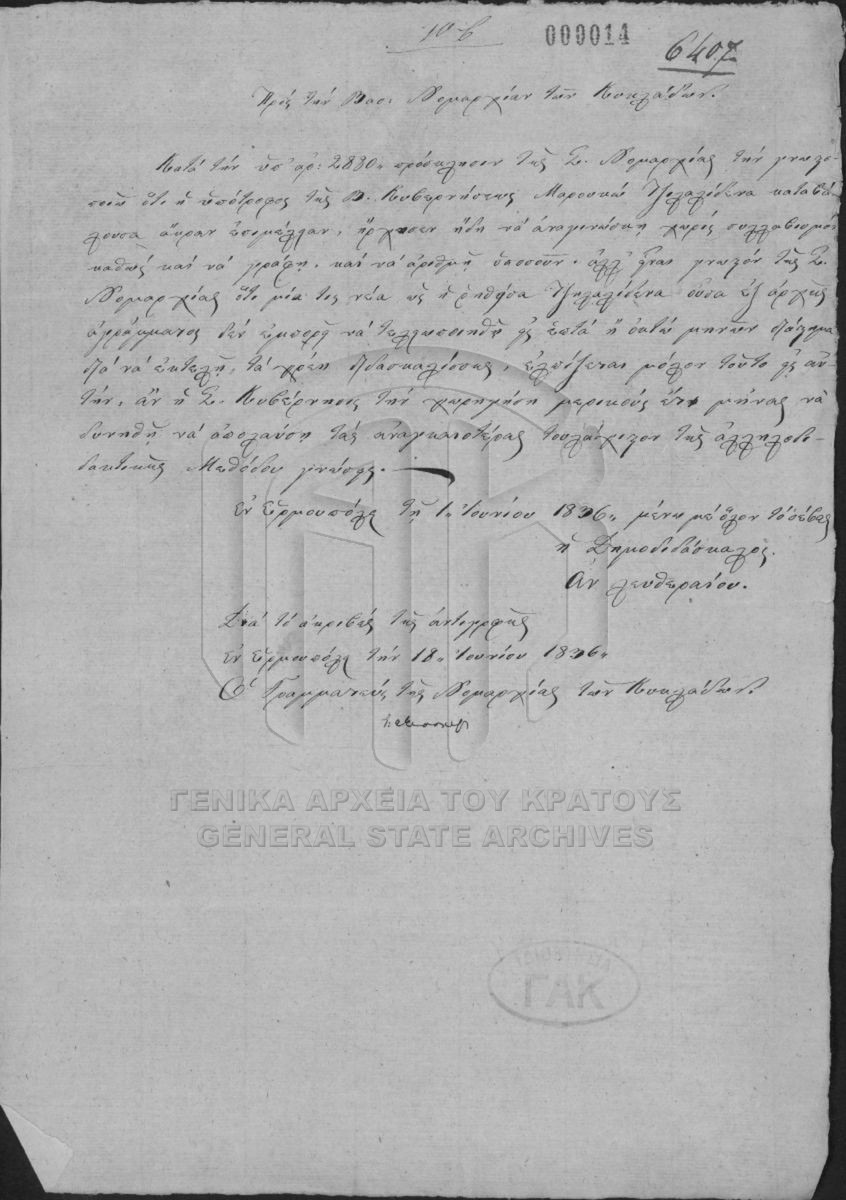 10 β
000014
6407
Πρὸς τὴν Βασ: Νομαρχίαν τῶν Κυκλάδων.
Κατὰ τὴν ὑπ' ἀρ: 2880" πρόσκλησιν τῆς Σ. Νομαρχίας τὴν γνωστο-
ποιῶ ὅτι ἡ ὑπότροφος τῆς Β. Κυβερνήσεως Μαρουκώ καταβά-
λουσα ἄκραν ἐπιμέλειαν, ἤρχισεν ἤδη νὰ ἀναγινώσκῃ χωρὶς συλλαβισμὸν
καθὼς καὶ νὰ γράφῃ, καὶ νὰ ἀριθμῇ ἀλλ' εἶναι γνωστὸν τῆς Σ.
Νομαρχίας ὅτι μία τις νέα ὡς ἡ ῥηθεῖσα οὖσα ἐξ ἀρχῆς
ἀγράμματος δὲν ἐμπορεῖ νὰ τελειοποιηθῇ εἰς ἑπτὰ ἢ ὀκτὼ μηνῶν διάστημα
διὰ νὰ ἐκτελῇ, τὰ χρέη διδασκαλίσσης, ἐλπίζεται μόλον τοῦτο εἰς αὐ-
τὴν, ἂν ἡ Σ. Κυβέρνησις τὴν χορηγήσῃ μερικοὺς ἔτι μῆνας νὰ
δυνηθῇ νὰ ἀπολαύσῃ τὰς ἀναγκαιοτέρας τουλάχιστον τῆς ἀλληλοδι-
δακτικῆς Μεθόδου γνώσεις.
Ἐν Ἑρμουπόλει τῇ 1" Ἰουνίου 1836" μένω μὲ ὅλον τὸ σέβας
ἡ Δημοδιδάσκαλος.
Αν Λευθεραίου.
Διὰ τὸ ἀκριβὲς τῆς ἀντιγραφῆς
Ἐν Ἑρμουπόλει τὴν 18" Ἰουνίου 1836"
Ὁ Γραμματεὺς τῆς Νομαρχίας τῶν Κυκλάδων.
ΓΕΝΙΚΑ ΑΡΧΕΙΑ ΤΟΥ ΚΡΑΤΟΥΣ
GENERAL STATE ARCHIVES
ΓΑΚ